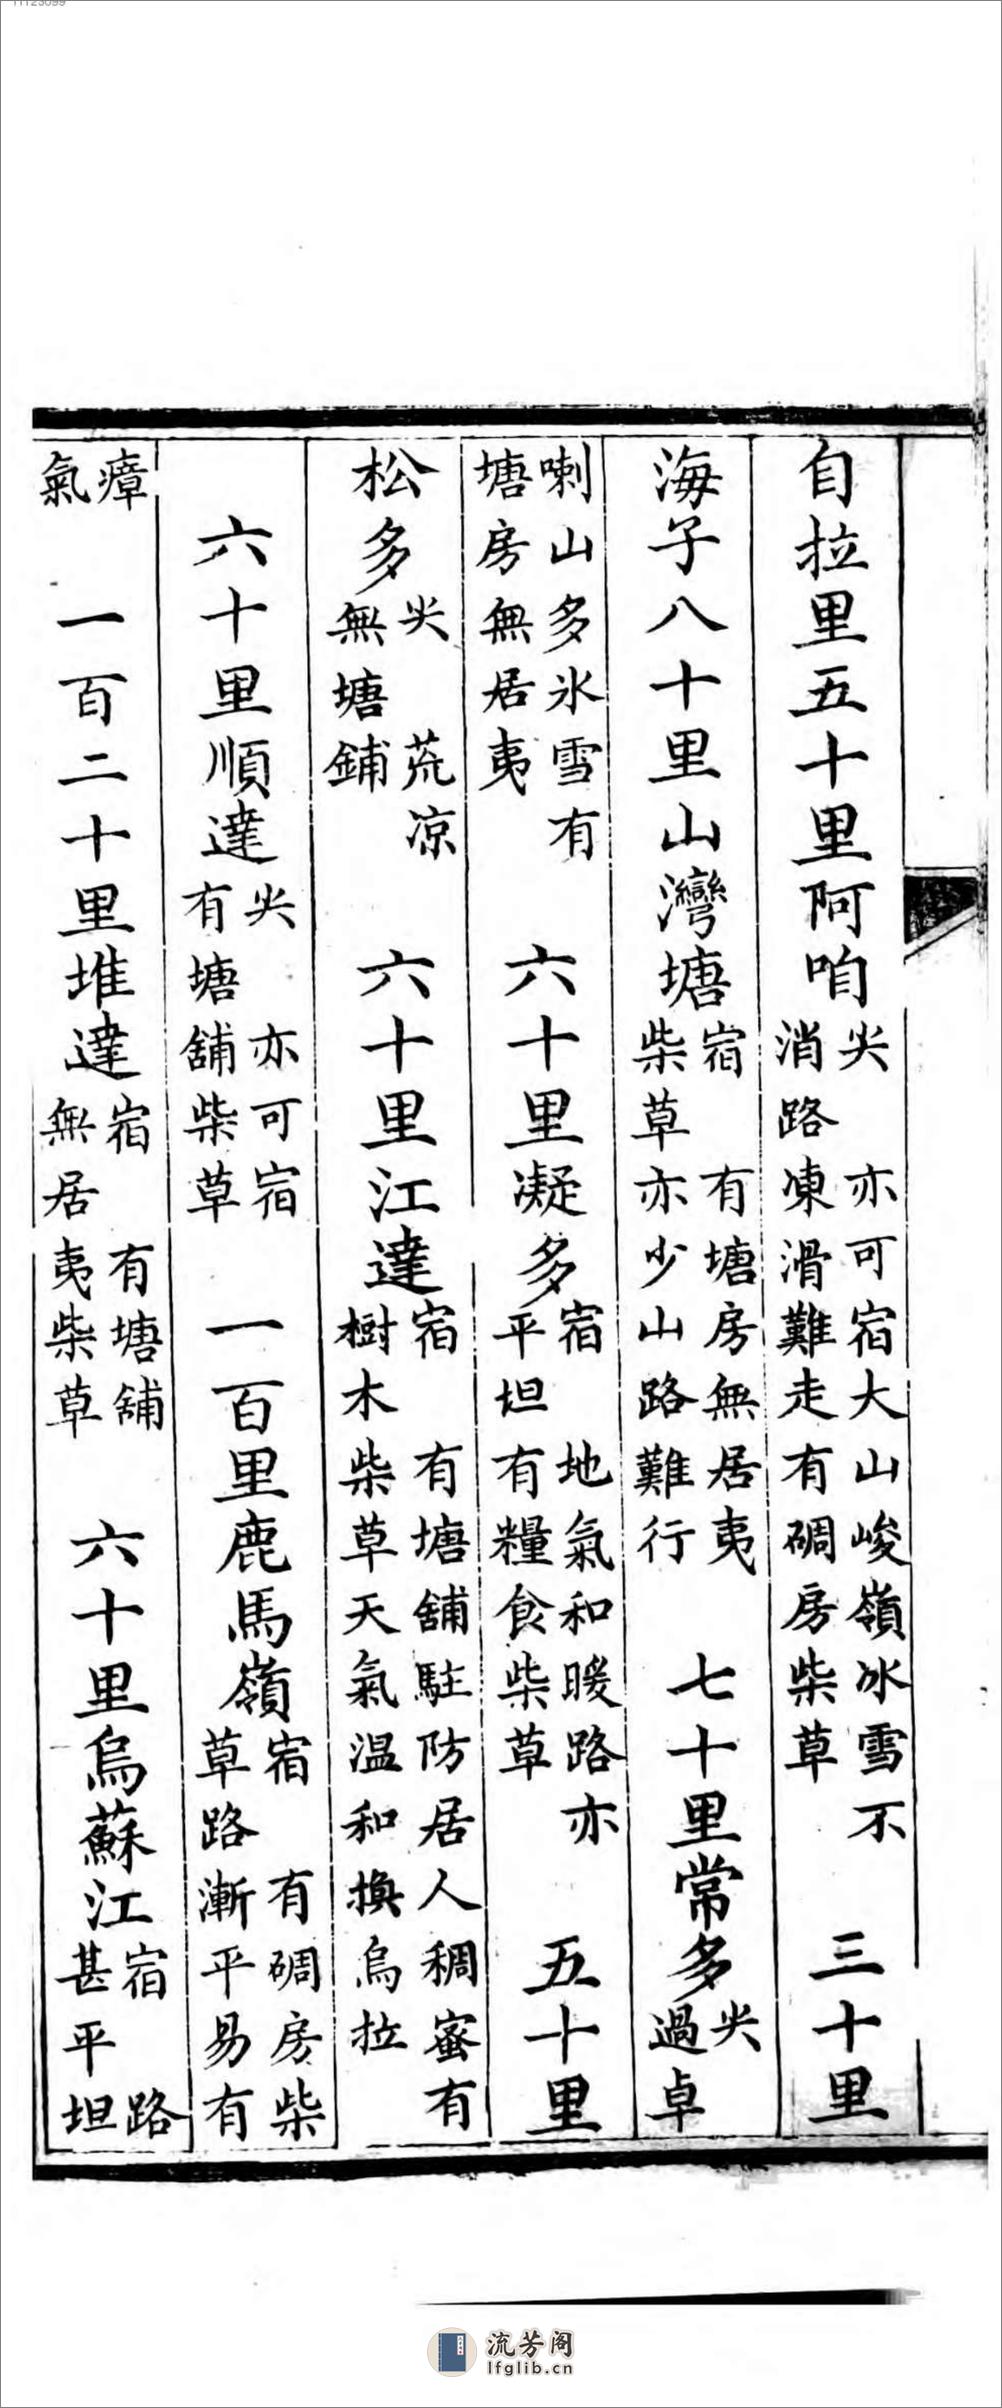 自拉里五十里阿咱尖亦可宿大山峻嶺冰雪不消路凍滑難走有碉房柴草三十里
海子八十里山灣塘宿有塘房無居夷柴草亦少山路難行七十里常多尖過卓
喇山多氷雪有塘房無居夷六十里凝多宿地氣和暖路亦平坦有糧食柴草五十里
松多尖荒凉無塘鋪六十里江達宿有塘舖駐防居人稠蜜有樹木柴草天氣温和換烏拉
六十里順達尖亦可宿有塘舖柴草一百里鹿馬嶺宿有碉房柴草路漸平易有
瘴氣一百二十里堆達宿有塘舖無居夷柴草六十里烏蘇江宿路甚平坦
流芳阁
lfglib.cn